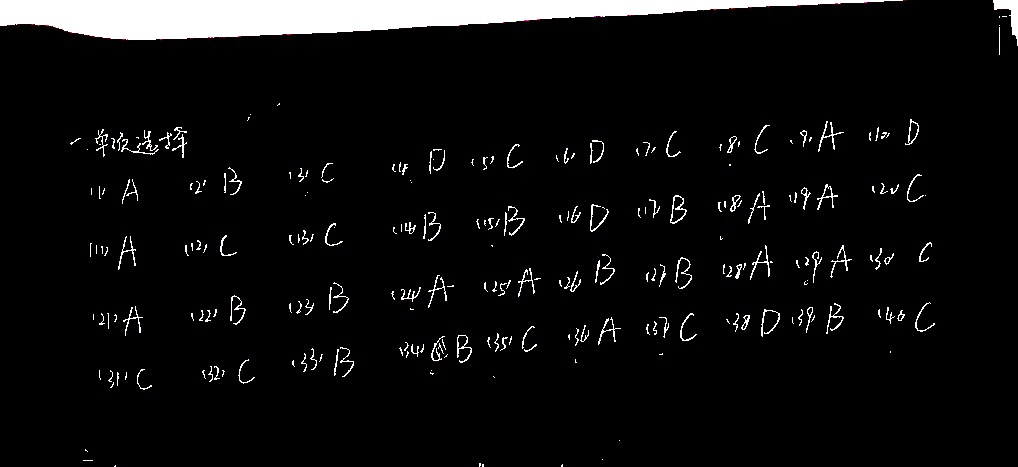 一.单项选择
(1) A (2) B (3) C (4) D (5) C (6) D (7) C (8) C (9) A (10) D
(11) A (12) C (13) C (14) B (15) B (16) D (17) B (18) A (19) A (20) C
(21) A (22) B (23) B (24) A (25) A (26) B (27) B (28) A (29) A (30) C
(31) C (32) C (33) B (34) B (35) C (36) A (37) C (38) D (39) B (40) C
二